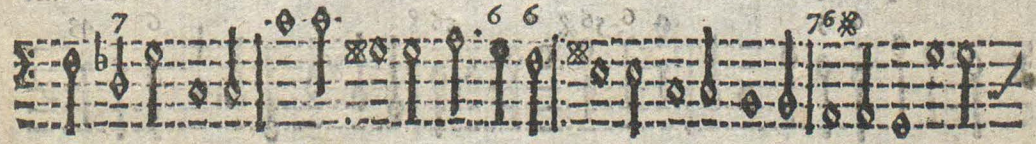 7 6 6 76